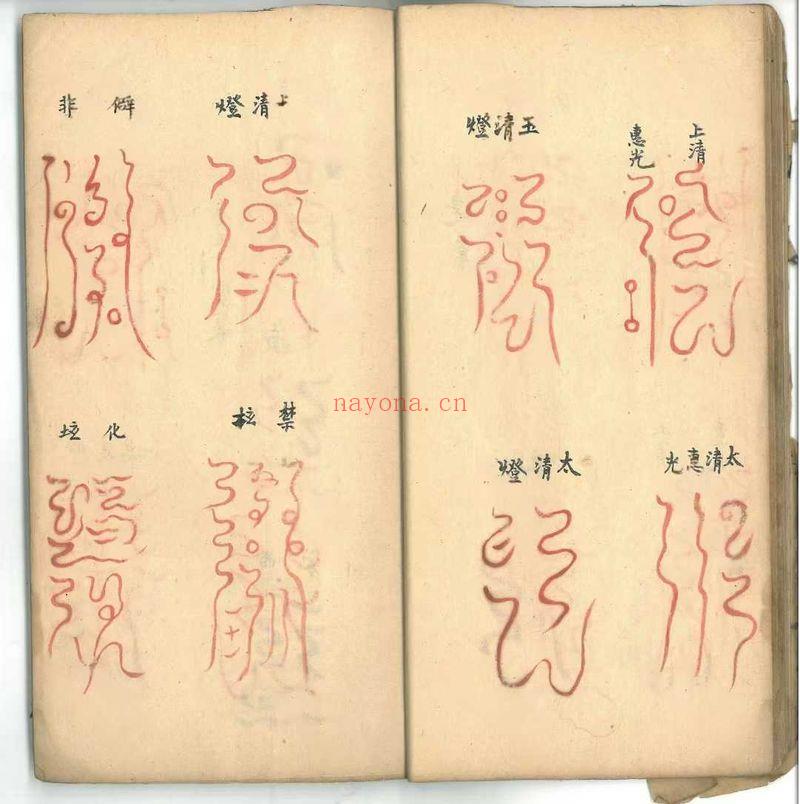 上清
惠光
太清惠光
玉清燈
太清燈
上清燈
禁
僻非
化
nayona.cn